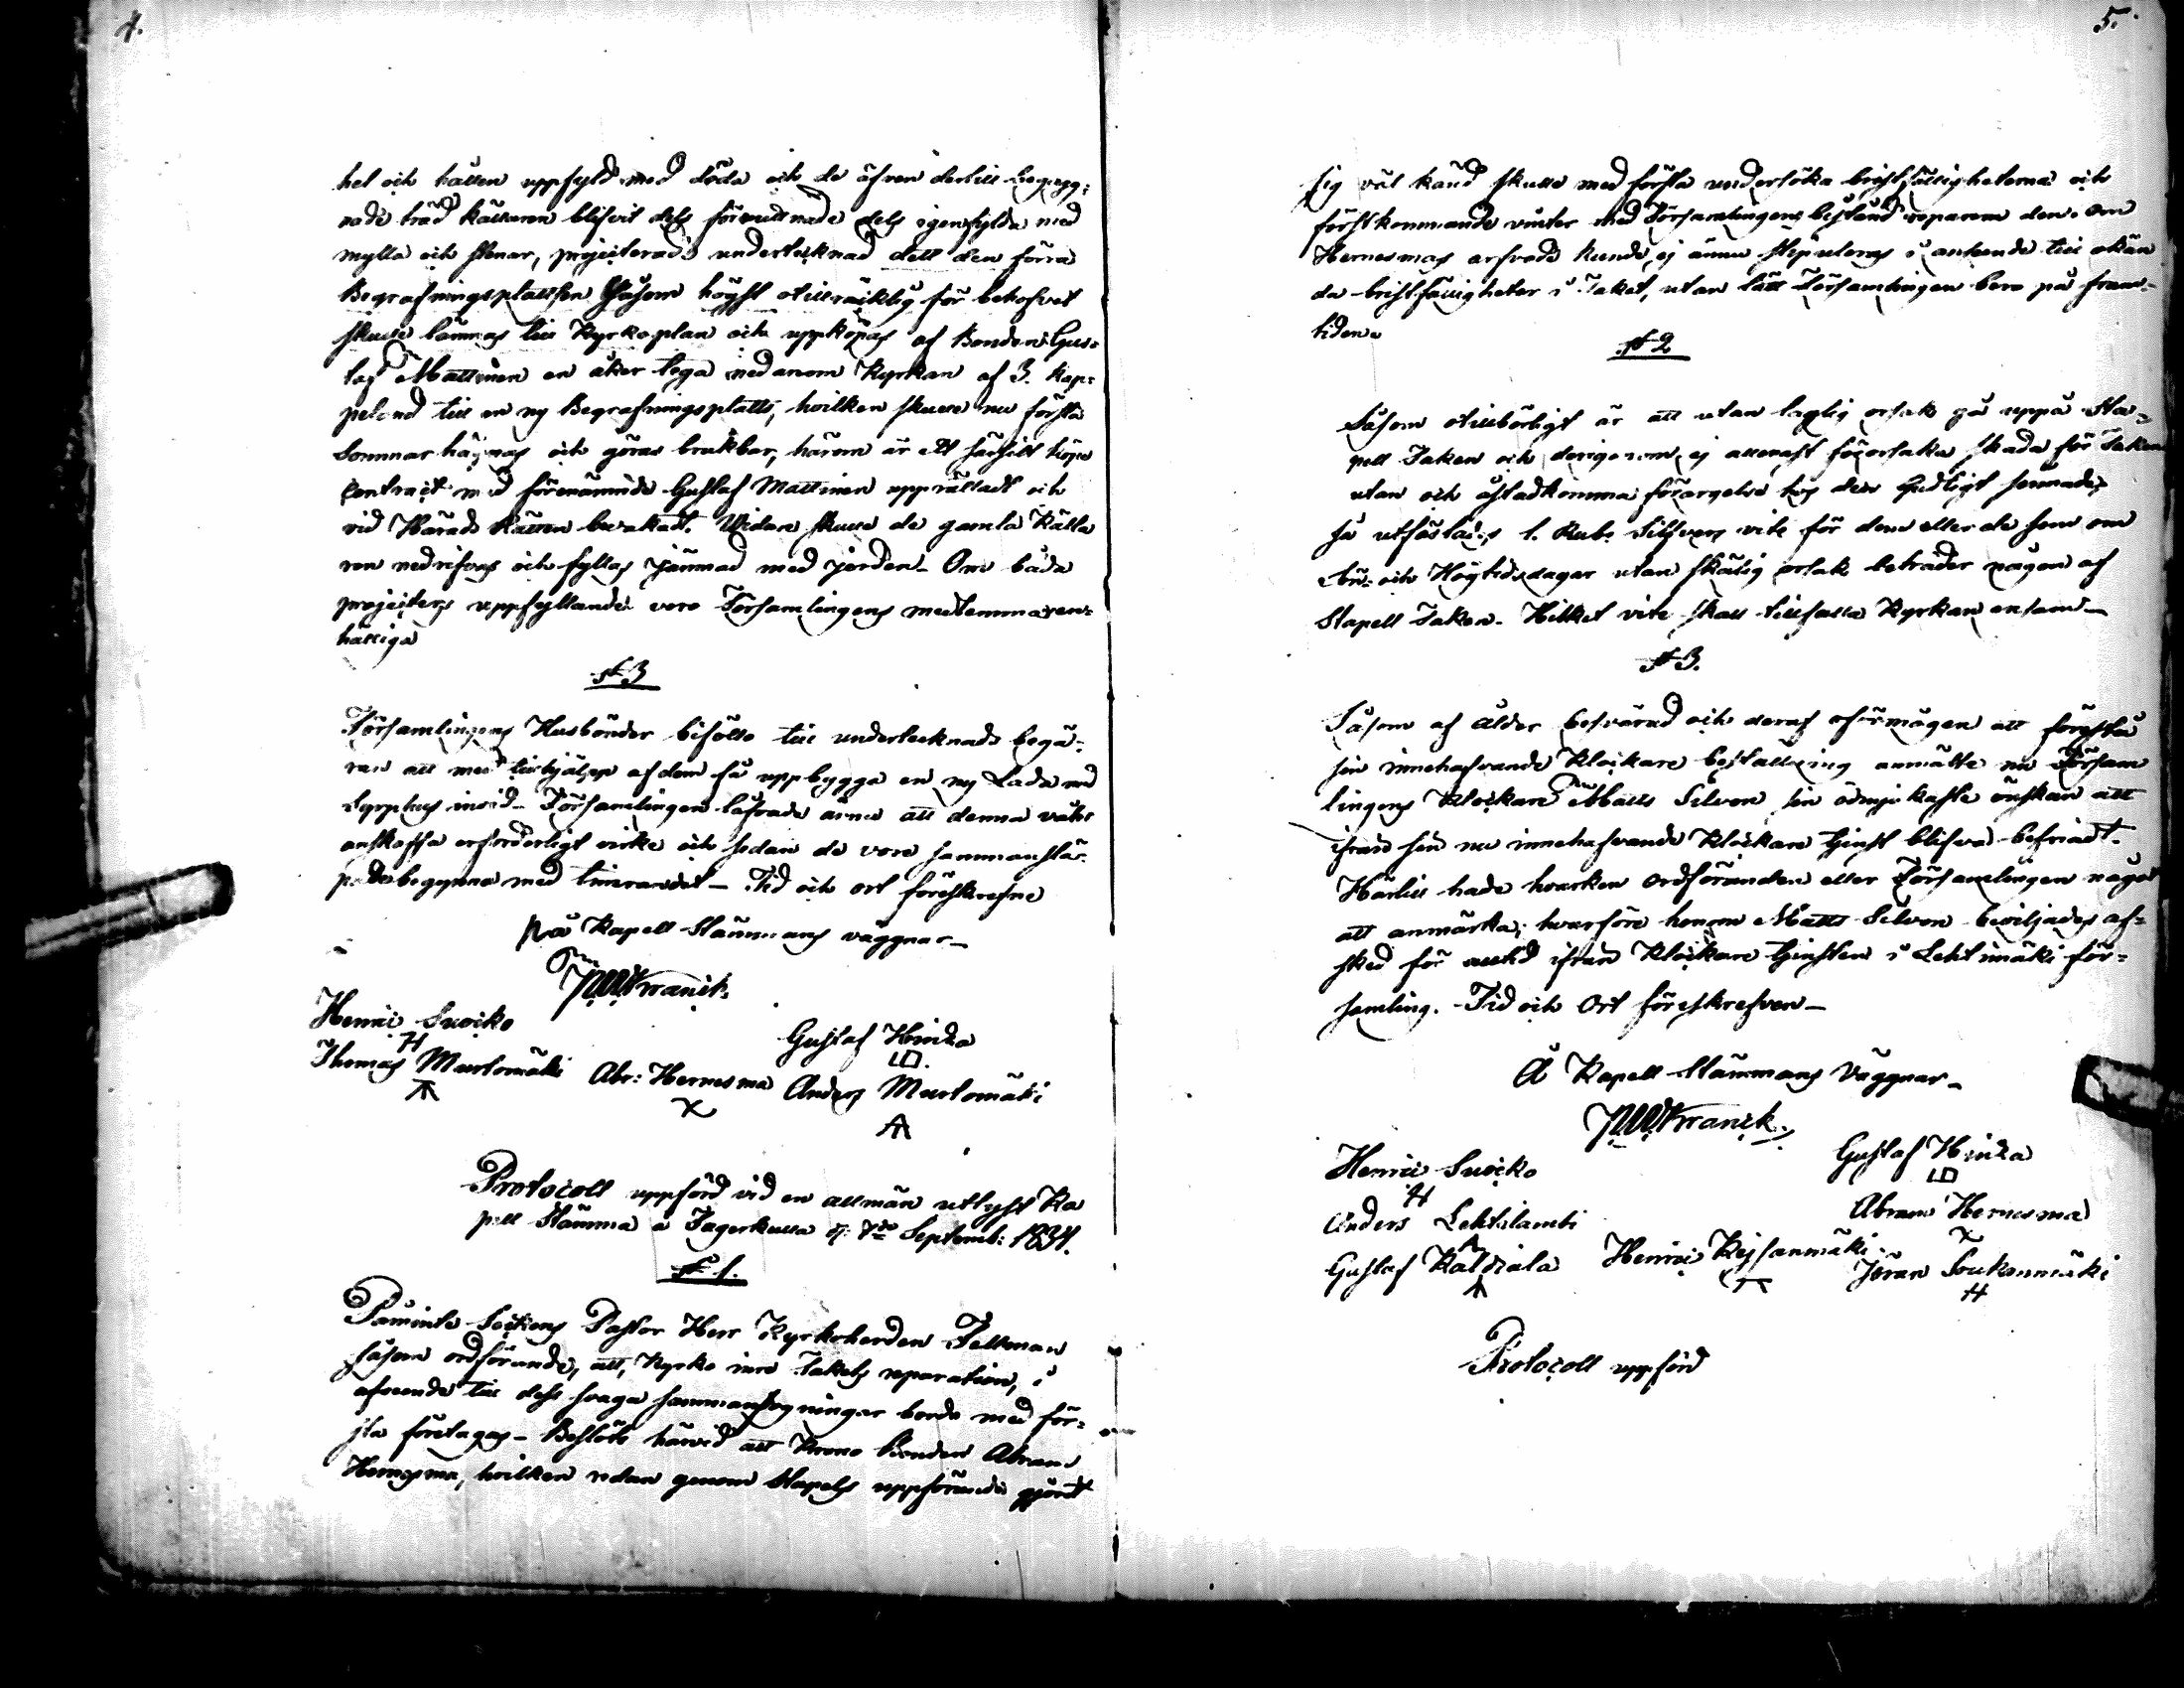 4.
hel och hållen uppfyld med döda och de äfven dertill begag¸
nade träd källaren blifvit dels förmultnade dels igenfylda med
mylla och stenar, projecterade undertecknad dett den förra
Begrafningsplattsen såsom högst otillräcklig för behofvet
skulle lämnas till Kyrkoplan och uppköpas af Bonden Gus-
taf Mattinen en åker tega nedanom Kyrkan af 3. kap-
peland till en ny Begrafningsplatts, hvilken skulle nu första
Sommar hägnas och göras brukbar, härom är ett särskilt köpe
Contract med förenämnde Gustaf Mattinen upprättadt och
vid Härads Rätten bevakadt. Widare skulle de gamla källa
ren nedrifvas och fyllas jämnad med jorden_ Om båda
projecters uppfyllande voro Församlingens medlemmar en-
hälliga
§ 3
Församlingens Husbönder biföllo till undertecknads begä¸
ran att med tillhjälp af dem få uppbygga en ny Lada med
Församlingen låfvade ännu att denna vår
anskaffa erforderligt virke och sedan de voro sammanslä
begynna med timrandet_ Tid och ort föreskrefne
På Kapell-Stämmans väggnar_
JWWranck.
Henric Suoiko
H
Gustaf Honka
Thomas Murtomäki
Abr: Hernesma
X
Anders Murtomäki
Protocoll uppförd vid en allmän utlyst Ka
pell Stämma å Sagerkulla d: 7de Septemb: 1834.
§ 1.
Påminte Soitions Pastor Herr Kyrkoherden Fellman
såsom ordförande, att, Kyrko inre takets reparation, i
afseende till dess svaga sammanfogningar borde med för¸
sta företagas_ Beslöts härvid att Krono Bonden Abram
Hernesma, hvilken redan genom Stapels uppförande gjordt
5.
sig väl känd skulle med första undersöka bristfälligheterna och
förstkommande vinter med Församlingens bistånd reparera den. Om
Hernesmas arfvode kunde ej ännu stipuleras i anseende till okän
da bristfälligheter i Taket, utan lätt Församlingen bero på fram-
tiden.
§ 2
Såsom otillbörligt är att utan laglig orsak gå uppå Sta-
pell Taken och derigenom ej allenast förorsaka skada för Taken
utan och åstadkomma förargelse hos den Gudligt sinnade,
så utfästades 1. Rub. Silfvers vite för den eller de som om
Sön- och Högtidsdagar utan skälig orsak beträder någon af
Stapell Taken. Hilket vite skall tillfalla Kyrkan ensamt_
§ 3.
Såsom af ålder besvärad och deraf oförmögen att förestå
sin innehafvande Klockare beställning anmälte nu Försam
lingens Klockare Matts Silvon sin ödmjukaste önskan att
ifrån sin nu innehafvande Klockare tjenst blifva befriadt.
Härtill hade hvarken Ordföranden eller Församlingen något
att anmärka; hvarföre honom Matts Silvon beviljades af¸
sked för alltid ifrån Klockare tjensten i Lehtimäki för¸
samling. - Tid och Ort föreskrefven_
Å Kapell Stämmans Väggnar_
JWWranck.
Henric Suoiko
H
Gustaf Honka
Anders Lehtilambi
Abram Hernesma
X
Gustaf Kaldiala
Henric Kejsanmäki.
Jöran Soukanmäki
H
Protocoll uppförd